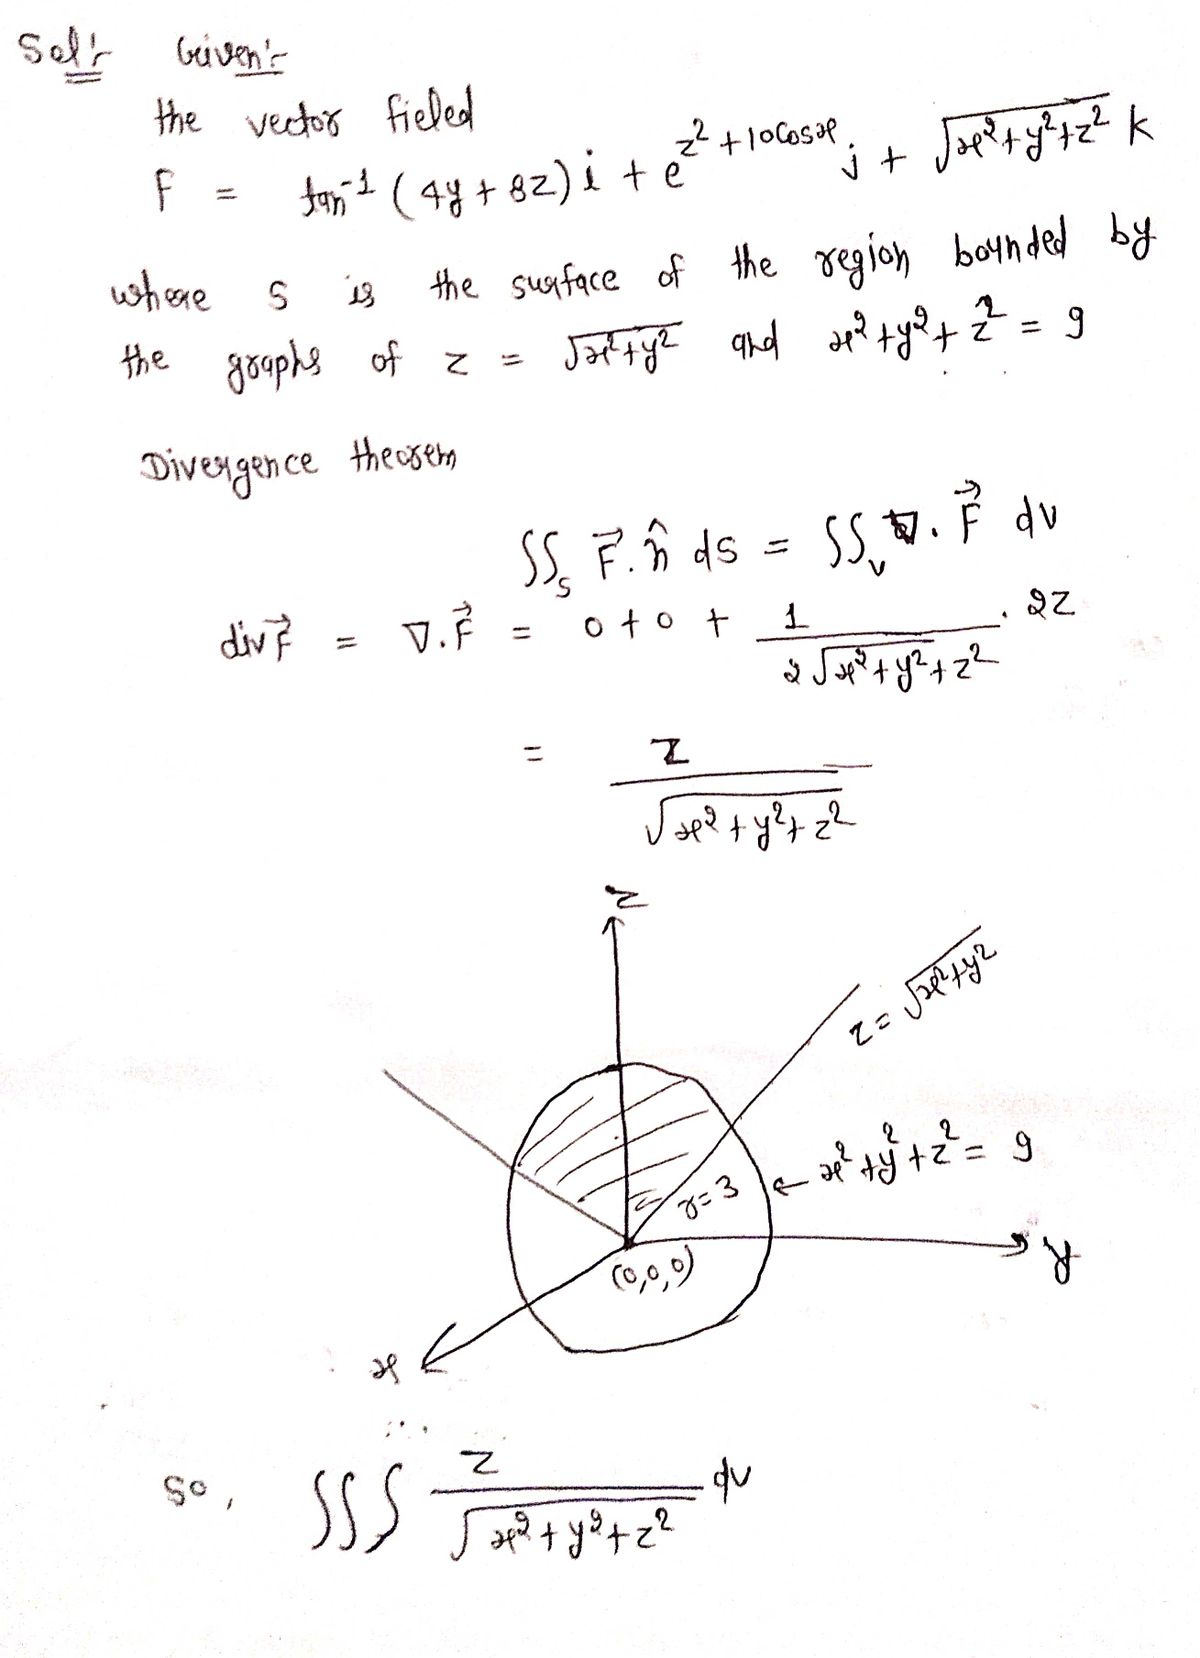 Sol:- Given:-
the vector fieled
F = tan⁻¹ (4y + 8z) i + e^(z² + 10cosx) j + √(x²+y²+z²) k
where S is the surface of the region bounded by
the graphs of z = √(x²+y²) and x²+y²+z² = 9
Divergence theorem
∬_S F⃗.n̂ ds = ∬_V ∇.F⃗ dv
div F⃗ = ∇.F⃗ = 0 + 0 + 1/(2√(x²+y²+z²)) . 2z
= z/√(x²+y²+z²)
z
z = √(x²+y²)
x²+y²+z² = 9
r=3
y
(0,0,0)
x
So, ∭ z/√(x²+y²+z²) dv